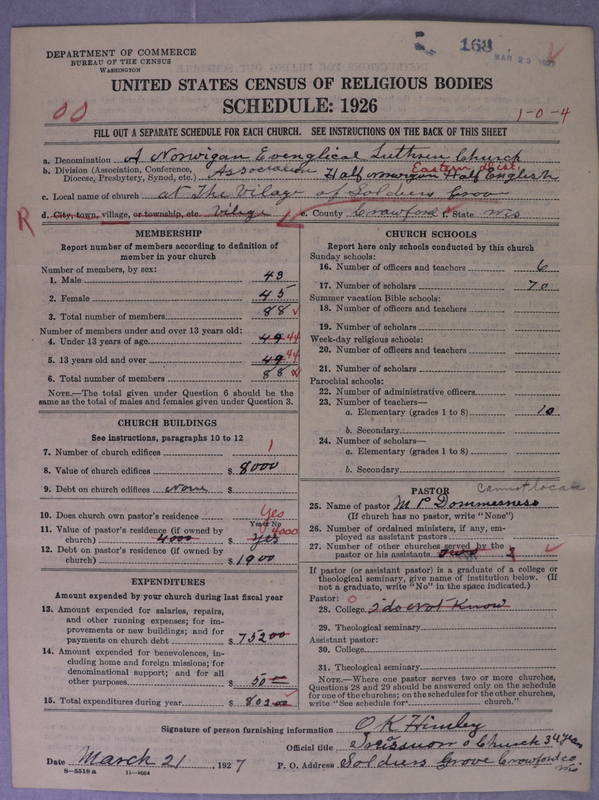 DEPARTMENT OF COMMERCE
BUREAU OF THE CENSUS
WASHINGTON
168
MAR 23 1927
UNITED STATES CENSUS OF RELIGIOUS BODIES
SCHEDULE: 1926
00
1-0-4
FILL OUT A SEPARATE SCHEDULE FOR EACH CHURCH. SEE INSTRUCTIONS ON THE BACK OF THIS SHEET
a. Denomination A Norwigan Evenglical Luthren Church
b. Division (Association, Conference, Diocese, Presbytery, Synod, etc.) Association Half norwigan Half English Eastern Dist.
c. Local name of church at The Vilage of Soldiers Grov
R d. City, town, village, or township, etc. Vilage e. County Crawford f. State Wis
MEMBERSHIP
Report number of members according to definition of
member in your church
Number of members, by sex:
1. Male 43
2. Female 45
3. Total number of members 88
Number of members under and over 13 years old:
4. Under 13 years of age 49 44
5. 13 years old and over 49 44
6. Total number of members 88
NOTE.—The total given under Question 6 should be
the same as the total of males and females given under Question 3.
CHURCH BUILDINGS
See instructions, paragraphs 10 to 12
7. Number of church edifices 1
8. Value of church edifices $ 8000
9. Debt on church edifices None $
10. Does church own pastor's residence Yes
Yes or No
11. Value of pastor's residence (if owned by
church) 4000 $ Yes 4000
12. Debt on pastor's residence (if owned by
church) $ 1900
EXPENDITURES
Amount expended by your church during last fiscal year
13. Amount expended for salaries, repairs,
and other running expenses; for im-
provements or new buildings; and for
payments on church debt $ 752 00
14. Amount expended for benevolences, in-
cluding home and foreign missions; for
denominational support; and for all
other purposes $ 50
15. Total expenditures during year $ 802 00
CHURCH SCHOOLS
Report here only schools conducted by this church
Sunday schools:
16. Number of officers and teachers 6
17. Number of scholars 70
Summer vacation Bible schools:
18. Number of officers and teachers
19. Number of scholars
Week-day religious schools:
20. Number of officers and teachers
21. Number of scholars
Parochial schools:
22. Number of administrative officers
23. Number of teachers—
a. Elementary (grades 1 to 8) 10
b. Secondary
24. Number of scholars—
a. Elementary (grades 1 to 8)
b. Secondary
PASTOR Cannot locate
25. Name of pastor M P Dommeasness
(If church has no pastor, write "None")
26. Number of ordained ministers, if any, em-
ployed as assistant pastors
27. Number of other churches served by the
pastor or his assistants
If pastor (or assistant pastor) is a graduate of a college or
theological seminary, give name of institution below. (If
not a graduate, write "No" in the space indicated.)
Pastor: 0
28. College I do Not Know
29. Theological seminary
Assistant pastor:
30. College
31. Theological seminary
NOTE.—Where one pastor serves two or more churches,
Questions 28 and 29 should be answered only on the schedule
for one of the churches; on the schedules for the other churches,
write "See schedule for church."
Signature of person furnishing information O K Himley
Official title o Church 34 year
Date March 21, 1927 P. O. Address Soldiers Grove Crawford co Wis
8—5518 a 11—9054